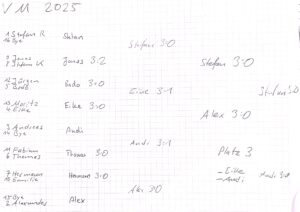 VM 2025
1 Stefan R
16 Bye
Stefan
Stefan 3:0
9 Jonas
8 Stefan K
Jonas 3:2
Stefan 3:0
12 Jürgen
5
Bodo 3:0
Eike 3:1
13 Moritz
4 Eike
Eike 3:0
Stefan 3:0
3 Andreas
14 Bye
Audi
Audi 3:1
11 Fabian
6 Thomas
Thomas 3:0
Alex 3:0
7 Hermann
10 Emilie
Hermann 3:0
Alex 3:0
15 Bye
2 Alexander
Alex
Platz 3
- Eike
- Audi
Audi 3:0